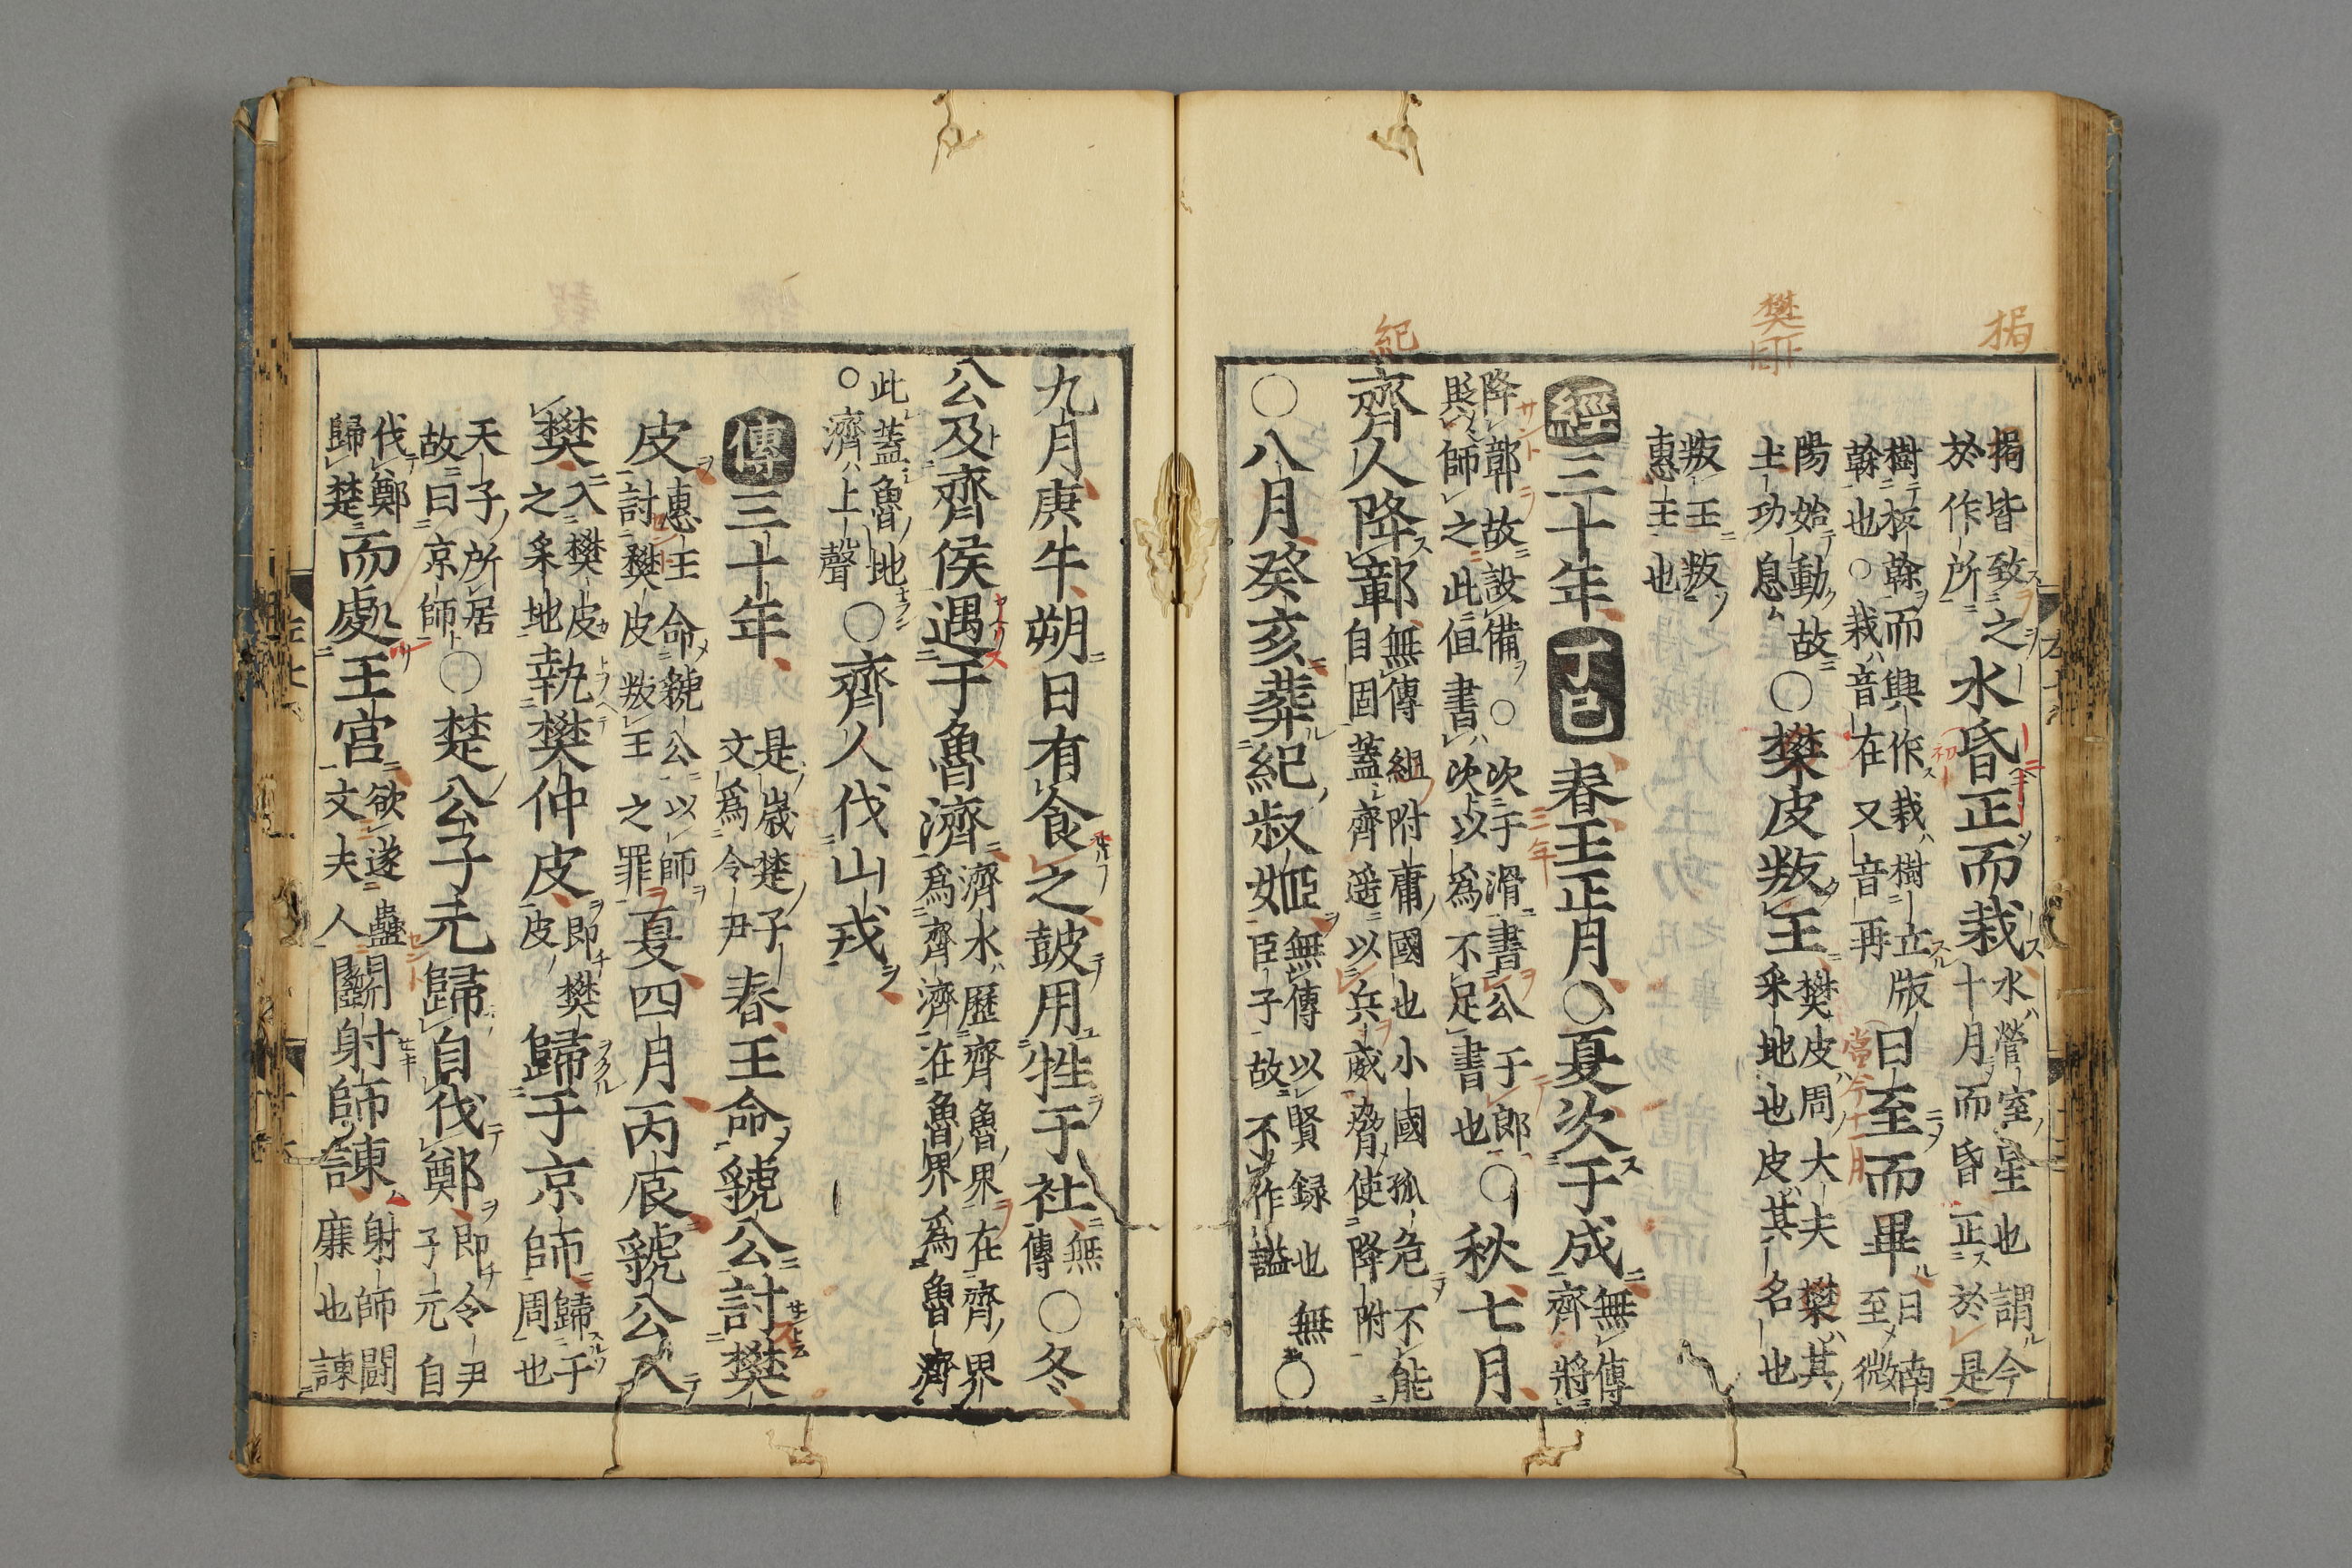 挶
樊
紀
挶皆致之於作所水昏正而栽水營室星也謂今十月而昏正於是
樹板榦而興作栽樹立版榦也○栽音在又音再日至而畢日南至微
陽始動故土功息○樊皮叛王樊皮周大夫樊其采地也皮其名也
叛王叛惠王也
經三十年丁巳春王正月○夏次于成無傳齊將
降鄣故設備○次于滑書公于郎與師之此但書次以為不足書也○秋七月
齊人降鄣無傳紀附庸國也小國孤危不能自固蓋齊遥以兵威脅使降附
○八月癸亥葬紀叔姬無傳以賢録也無臣子故不作謚○
九月庚午朔日有食之鼓用牲于社無傳○冬
公及齊侯遇于魯濟濟水歷齊魯界在齊界為齊濟在魯界為魯濟
此蓋魯地○濟上聲○齊人伐山戎
傳三十年是歲楚子文為令尹春王命虢公討樊
皮惠王命虢公以師討樊皮叛王之罪夏四月丙辰虢公入
樊入樊皮之采地執樊仲皮即樊皮歸于京師歸于周也
天子所居故曰京師○楚公子元歸自伐鄭即令尹子元自
伐鄭歸楚而處王宮欲遂蠱文夫人鬭射師諫射師鬪廉也諫